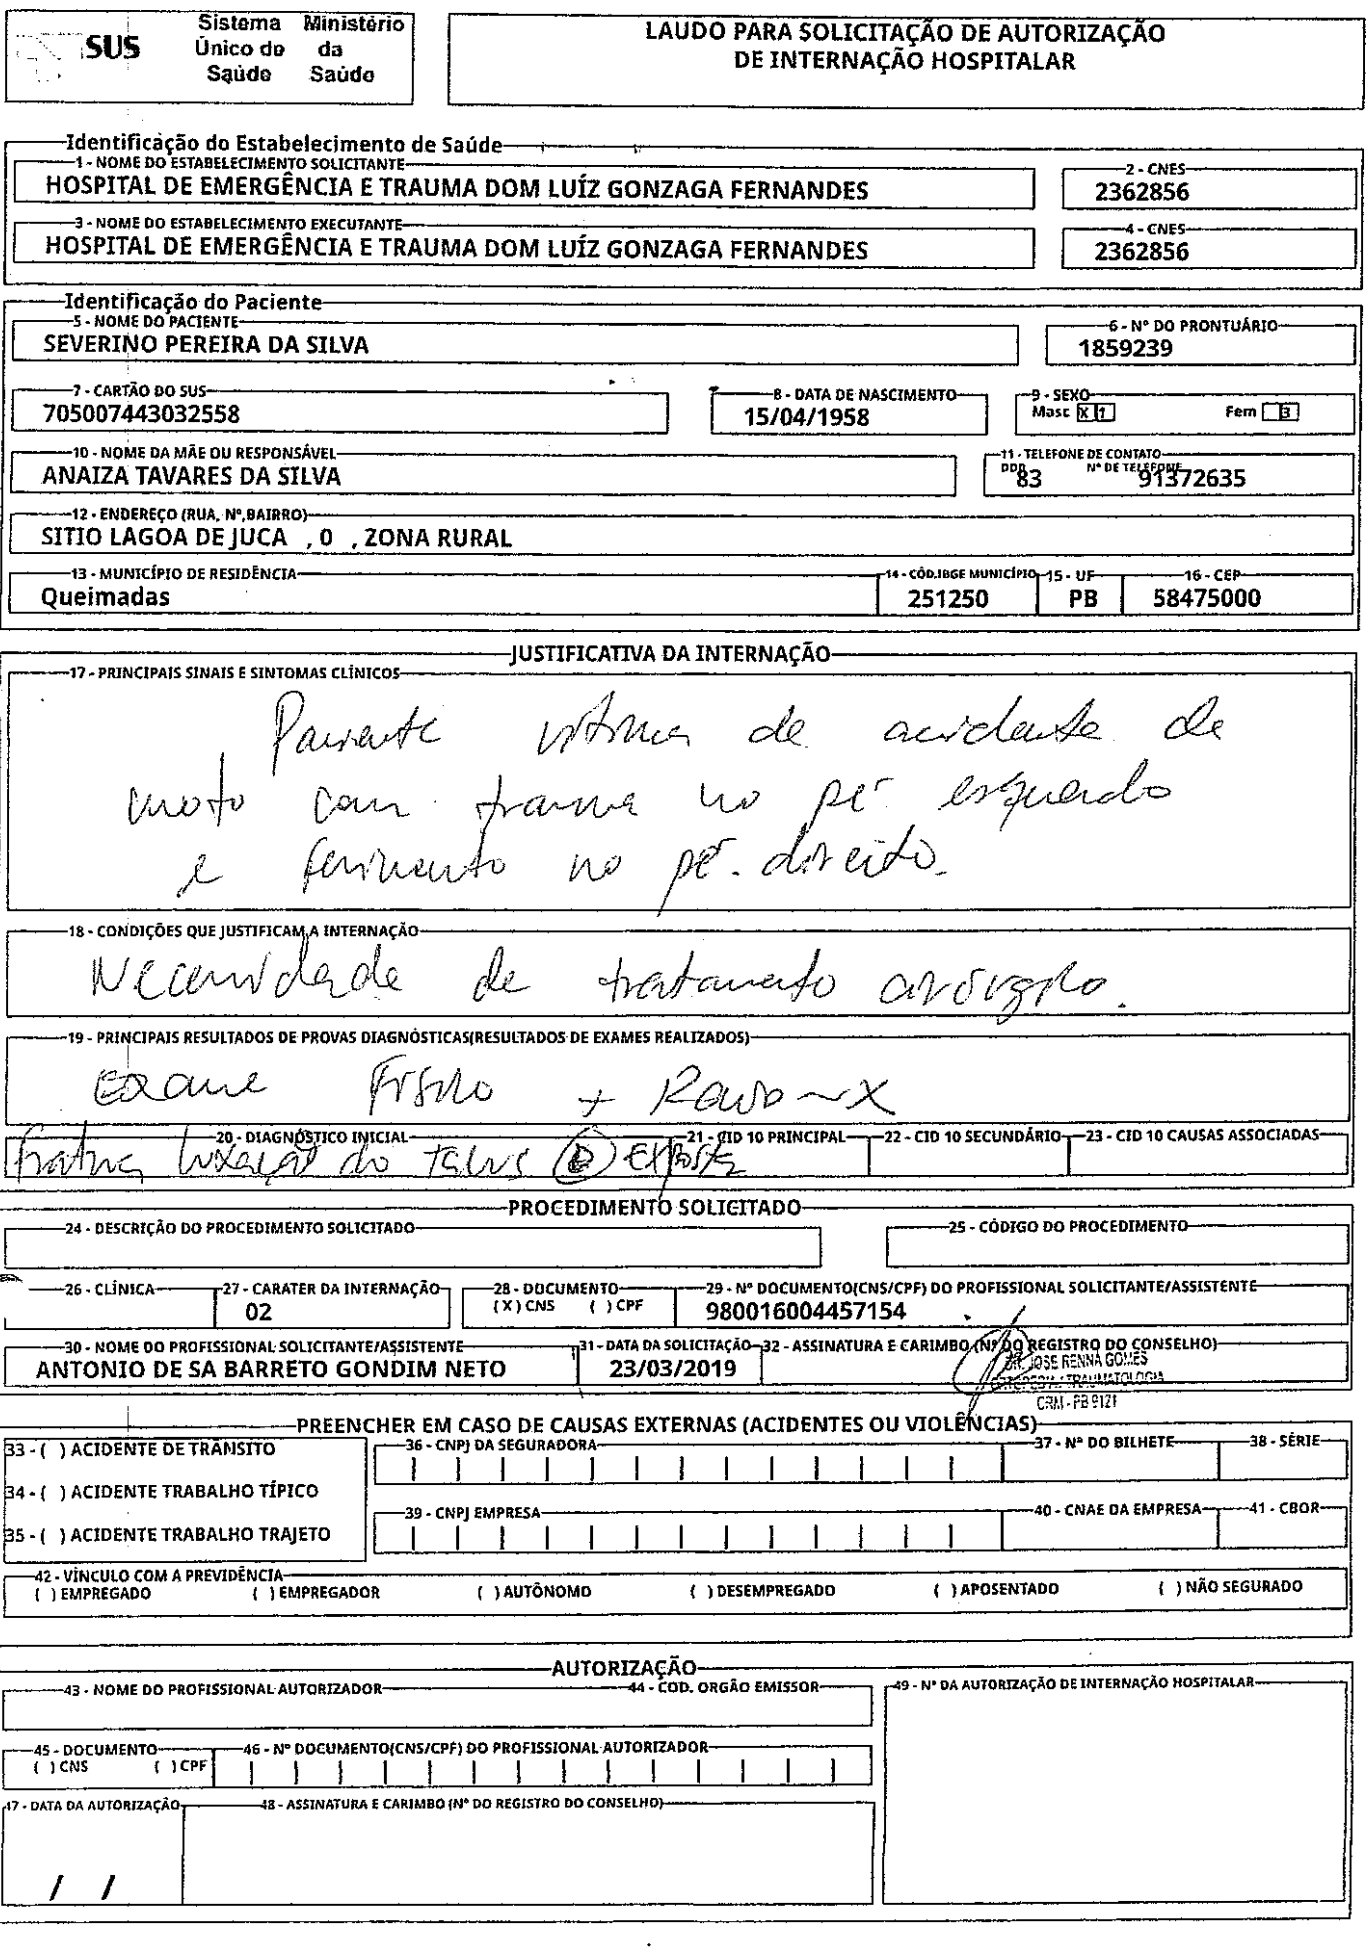 SUS
Sistema Ministério
Único de da
Saúde Saúde
LAUDO PARA SOLICITAÇÃO DE AUTORIZAÇÃO
DE INTERNAÇÃO HOSPITALAR
Identificação do Estabelecimento de Saúde
1 - NOME DO ESTABELECIMENTO SOLICITANTE
HOSPITAL DE EMERGÊNCIA E TRAUMA DOM LUÍZ GONZAGA FERNANDES
2 - CNES
2362856
3 - NOME DO ESTABELECIMENTO EXECUTANTE
HOSPITAL DE EMERGÊNCIA E TRAUMA DOM LUÍZ GONZAGA FERNANDES
4 - CNES
2362856
Identificação do Paciente
5 - NOME DO PACIENTE
SEVERINO PEREIRA DA SILVA
6 - Nº DO PRONTUÁRIO
1859239
7 - CARTÃO DO SUS
705007443032558
8 - DATA DE NASCIMENTO
15/04/1958
9 - SEXO
Masc X 1 Fem 3
10 - NOME DA MÃE OU RESPONSÁVEL
ANAIZA TAVARES DA SILVA
11 - TELEFONE DE CONTATO
DDD Nº DE TELEFONE
83 91372635
12 - ENDEREÇO (RUA, Nº,BAIRRO)
SITIO LAGOA DE JUCA , 0 , ZONA RURAL
13 - MUNICÍPIO DE RESIDÊNCIA
Queimadas
14 - CÓD.IBGE MUNICÍPIO
251250
15 - UF
PB
16 - CEP
58475000
JUSTIFICATIVA DA INTERNAÇÃO
17 - PRINCIPAIS SINAIS E SINTOMAS CLÍNICOS
Paciente vitima de acidente de
moto com trauma no pé esquerdo
e ferimento no pé direito.
18 - CONDIÇÕES QUE JUSTIFICAM A INTERNAÇÃO
Necessidade de tratamento cirúrgico.
19 - PRINCIPAIS RESULTADOS DE PROVAS DIAGNÓSTICAS(RESULTADOS DE EXAMES REALIZADOS)
Exame Físico + Raio-X
20 - DIAGNÓSTICO INICIAL
21 - CID 10 PRINCIPAL
22 - CID 10 SECUNDÁRIO
23 - CID 10 CAUSAS ASSOCIADAS
fratura luxação do talus exposta
PROCEDIMENTO SOLICITADO
24 - DESCRIÇÃO DO PROCEDIMENTO SOLICITADO
25 - CÓDIGO DO PROCEDIMENTO
26 - CLÍNICA
27 - CARATER DA INTERNAÇÃO
02
28 - DOCUMENTO
( X ) CNS ( ) CPF
29 - Nº DOCUMENTO(CNS/CPF) DO PROFISSIONAL SOLICITANTE/ASSISTENTE
980016004457154
30 - NOME DO PROFISSIONAL SOLICITANTE/ASSISTENTE
ANTONIO DE SA BARRETO GONDIM NETO
31 - DATA DA SOLICITAÇÃO
23/03/2019
32 - ASSINATURA E CARIMBO (Nº DO REGISTRO DO CONSELHO)
DR. JOSE RENNA GOMES
ORTOPEDIA / TRAUMATOLOGIA
CRM - PB 9121
PREENCHER EM CASO DE CAUSAS EXTERNAS (ACIDENTES OU VIOLÊNCIAS)
33 - ( ) ACIDENTE DE TRÂNSITO
34 - ( ) ACIDENTE TRABALHO TÍPICO
35 - ( ) ACIDENTE TRABALHO TRAJETO
36 - CNPJ DA SEGURADORA
37 - Nº DO BILHETE
38 - SÉRIE
39 - CNPJ EMPRESA
40 - CNAE DA EMPRESA
41 - CBOR
42 - VÍNCULO COM A PREVIDÊNCIA
( ) EMPREGADO ( ) EMPREGADOR ( ) AUTÔNOMO ( ) DESEMPREGADO ( ) APOSENTADO ( ) NÃO SEGURADO
AUTORIZAÇÃO
43 - NOME DO PROFISSIONAL AUTORIZADOR
44 - COD. ORGÃO EMISSOR
49 - Nº DA AUTORIZAÇÃO DE INTERNAÇÃO HOSPITALAR
45 - DOCUMENTO
( ) CNS ( ) CPF
46 - Nº DOCUMENTO(CNS/CPF) DO PROFISSIONAL AUTORIZADOR
47 - DATA DA AUTORIZAÇÃO
/ /
48 - ASSINATURA E CARIMBO (Nº DO REGISTRO DO CONSELHO)